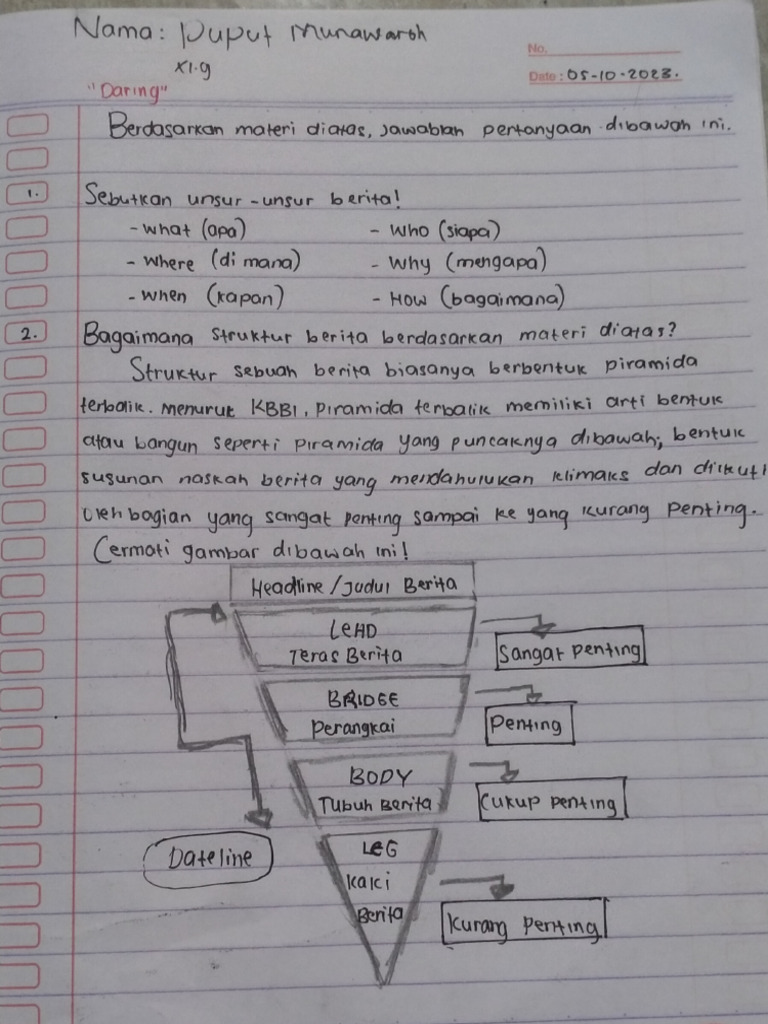 Nama: Puput Munawaroh
No.
XI.9
Date: 05-10-2023.
"Daring"
Berdasarkan materi diatas, jawablah pertanyaan dibawah ini.
1. Sebutkan unsur-unsur berita!
- What (apa) - Who (siapa)
- Where (di mana) - Why (mengapa)
- When (kapan) - How (bagaimana)
2. Bagaimana struktur berita berdasarkan materi diatas?
Struktur sebuah berita biasanya berbentuk piramida
terbalik. Menurut KBBI, piramida terbalik memiliki arti bentuk
atau bangun seperti piramida yang puncaknya dibawah; bentuk
susunan naskah berita yang mendahulukan klimaks dan diikuti
oleh bagian yang sangat penting sampai ke yang kurang penting.
Cermati gambar dibawah ini!
Headline / Judul Berita
LEAD
Teras Berita
Sangat penting
BRIDGE
Perangkai
Penting
BODY
Tubuh Berita
Cukup penting
Dateline
LEG
Kaki
Berita
Kurang penting